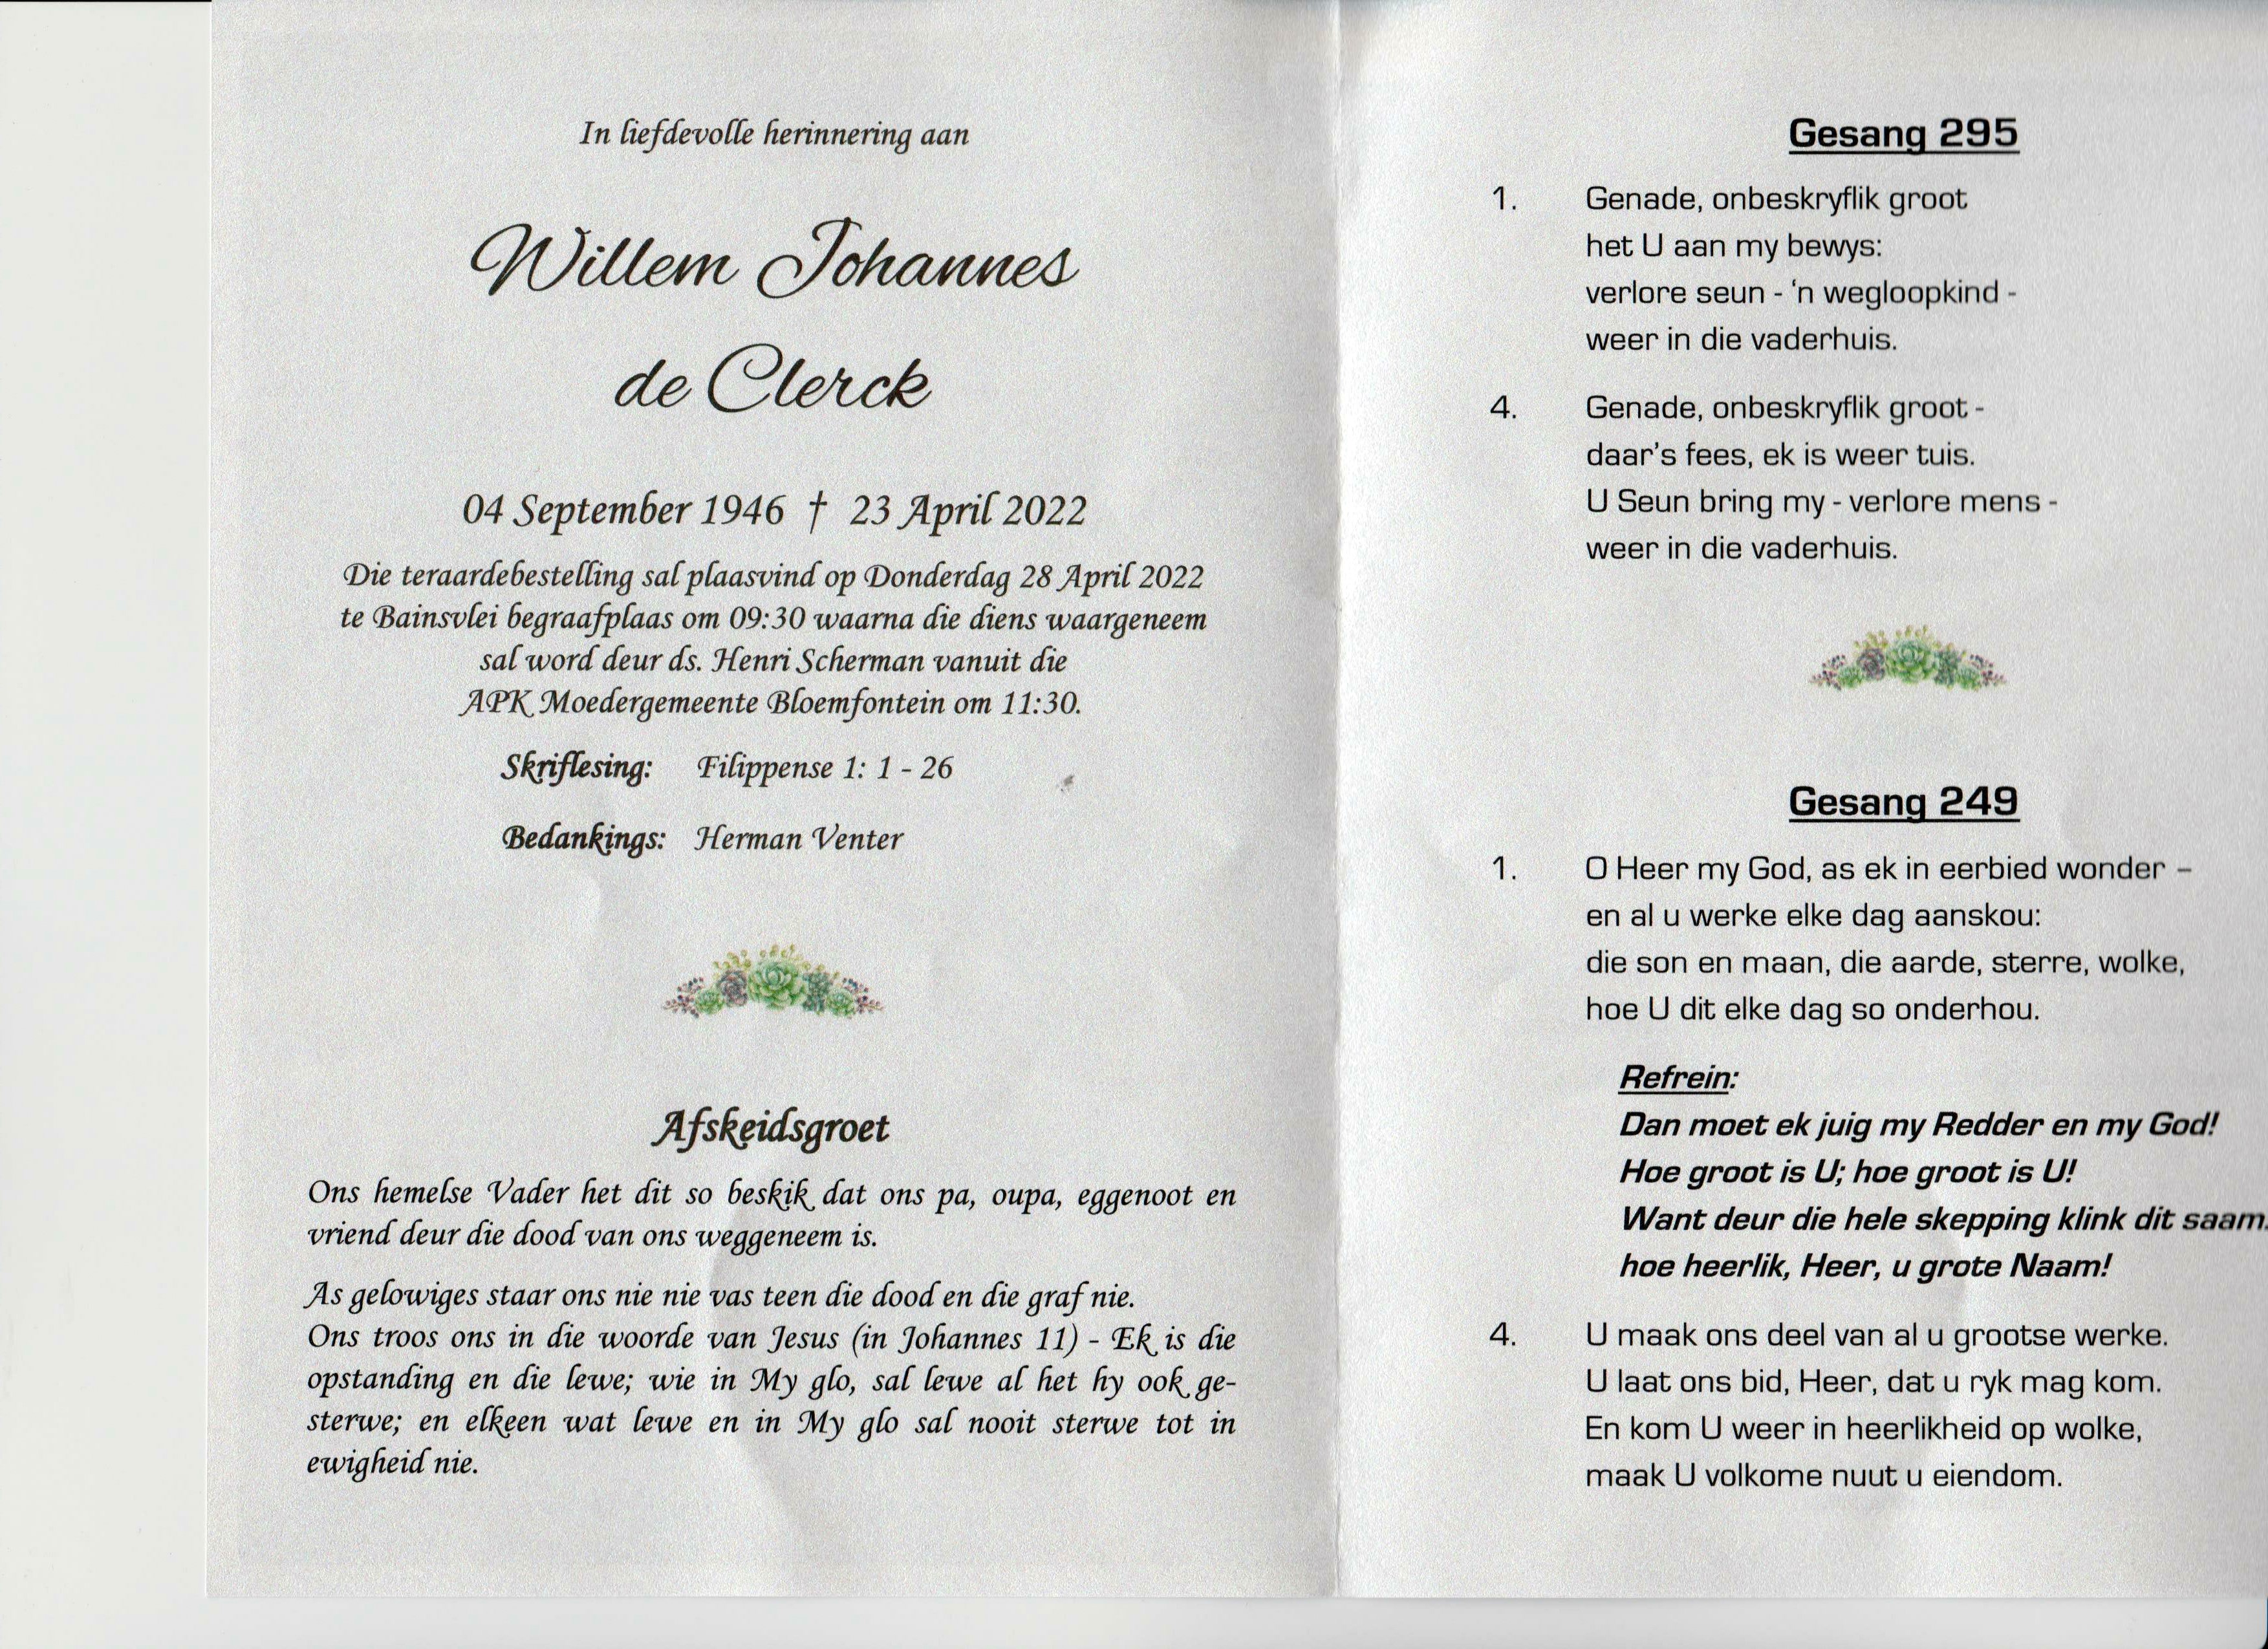 In liefdevolle herinnering aan
Willem Johannes
de Clerck
04 September 1946 † 23 April 2022
Die teraardebestelling sal plaasvind op Donderdag 28 April 2022
te Bainsvlei begraafplaas om 09:30 waarna die diens waargeneem
sal word deur ds. Henri Scherman vanuit die
APK Moedergemeente Bloemfontein om 11:30.
Skriflesing: Filippense 1: 1 - 26
Bedankings: Herman Venter
Afskeidsgroet
Ons hemelse Vader het dit so beskik dat ons pa, oupa, eggenoot en
vriend deur die dood van ons weggeneem is.
As gelowiges staar ons nie nie vas teen die dood en die graf nie.
Ons troos ons in die woorde van Jesus (in Johannes 11) - Ek is die
opstanding en die lewe; wie in My glo, sal lewe al het hy ook ge-
sterwe; en elkeen wat lewe en in My glo sal nooit sterwe tot in
ewigheid nie.
Gesang 295
1. Genade, onbeskryflik groot
het U aan my bewys:
verlore seun - 'n wegloopkind -
weer in die vaderhuis.
4. Genade, onbeskryflik groot -
daar's fees, ek is weer tuis.
U Seun bring my - verlore mens -
weer in die vaderhuis.
Gesang 249
1. O Heer my God, as ek in eerbied wonder –
en al u werke elke dag aanskou:
die son en maan, die aarde, sterre, wolke,
hoe U dit elke dag so onderhou.
Refrein:
Dan moet ek juig my Redder en my God!
Hoe groot is U; hoe groot is U!
Want deur die hele skepping klink dit saam:
hoe heerlik, Heer, u grote Naam!
4. U maak ons deel van al u grootse werke.
U laat ons bid, Heer, dat u ryk mag kom.
En kom U weer in heerlikheid op wolke,
maak U volkome nuut u eiendom.